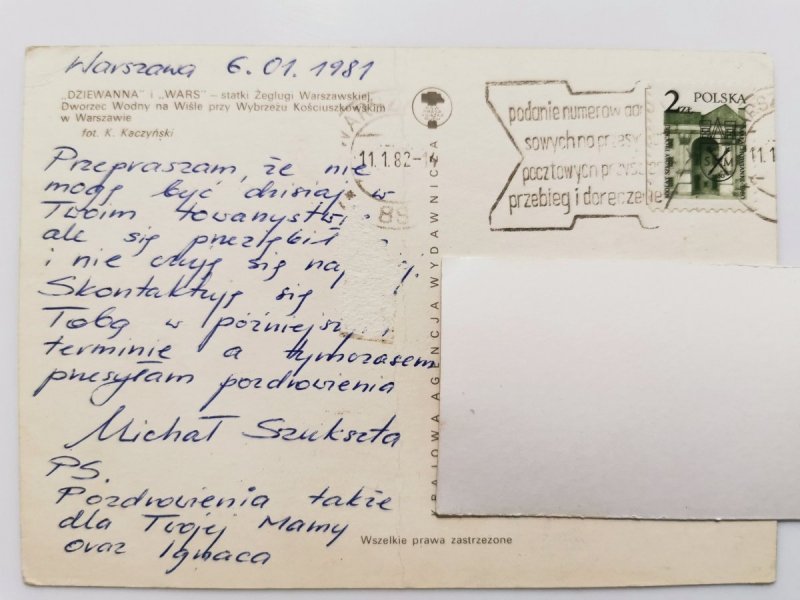 Warszawa 6.01.1981
„DZIEWANNA” i „WARS” – statki Żeglugi Warszawskiej
Dworzec Wodny na Wiśle przy Wybrzeżu Kościuszkowskim
w Warszawie
fot. K. Kaczyński
Przepraszam, że nie
mogę być dzisiaj w
Twoim
ale się
i nie czuję się
Skontaktuję się
Tobą w
terminie a tymczasem
przesyłam pozdrowienia
Michał Szukszta
PS.
Pozdrowienia także
dla Twojej Mamy
oraz Ignaca
KRAJOWA AGENCJA WYDAWNICZA
11.1.82
podanie numerów
sowych na
pocztowych
przebieg i doręczenie
2 zł POLSKA
11.1
Wszelkie prawa zastrzeżone